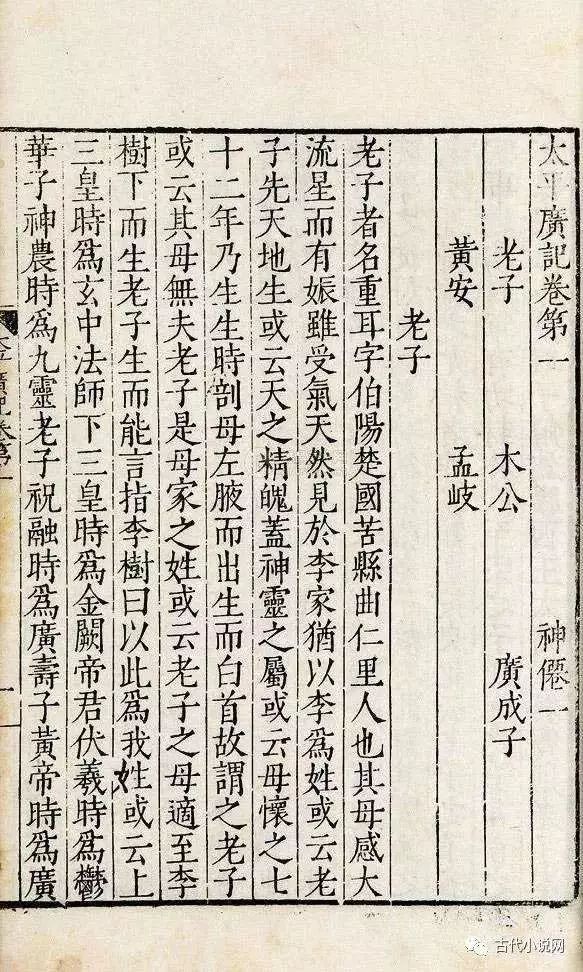 太平廣記卷第一 神僊一
老子 木公 廣成子
黃安 孟岐
老子
老子者名重耳字伯陽楚國苦縣曲仁里人也其母感大
流星而有娠雖受氣天然見於李家猶以李爲姓或云老
子先天地生或云天之精魄蓋神靈之屬或云母懷之七
十二年乃生生時剖母左腋而出生而白首故謂之老子
或云其母無夫老子是母家之姓或云老子之母適至李
樹下而生老子生而能言指李樹曰以此爲我姓或云上
三皇時爲玄中法師下三皇時爲金闕帝君伏羲時爲鬱
華子神農時爲九靈老子祝融時爲廣壽子黃帝時爲廣
太平廣記卷第一 一
古代小说网